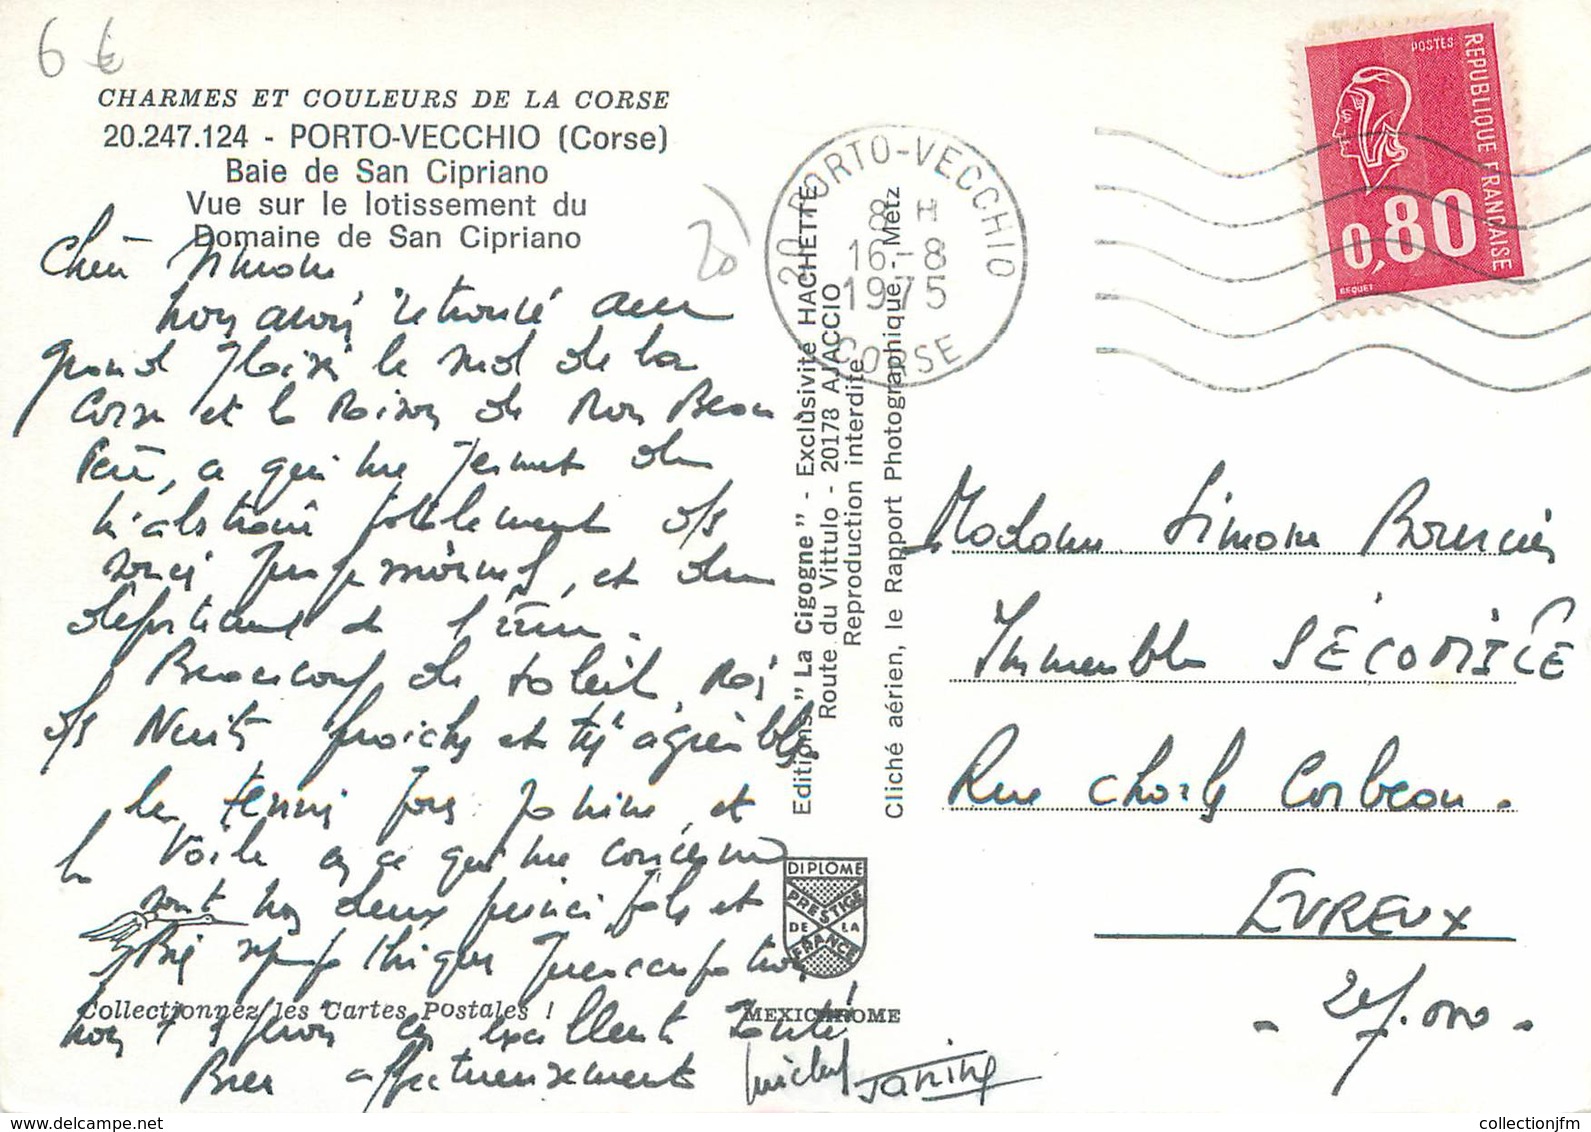 6 €
CHARMES ET COULEURS DE LA CORSE
20.247.124 - PORTO-VECCHIO (Corse)
Baie de San Cipriano
Vue sur le lotissement du
Domaine de San Cipriano
Chère Simone
nous avons retrouvé avec
grand plaisir le sud de la
Corse et la maison de mon Beau
Père, ce qui me permet de
m'abstraire totalement des
soucis et du
département de l'Eure.
Beaucoup de soleil, mais
des Nuits fraîches et très agréables
le tennis pour Janine, et
la Voile en ce qui me concerne
sont nos deux principales et
très sympathiques preoccupations
nous y sommes en excellente santé
Bien affectueusement Michel Janine
20
PORTO-VECCHIO
8 H
16-8
1975
20 CORSE
POSTES
REPUBLIQUE FRANCAISE
0,80
BEQUET
Editions "La Cigogne" - Exclusivité HACHETTE
Route du Vittulo - 20178 AJACCIO
Reproduction interdite
Cliché aérien, le Rapport Photographique - Metz
DIPLOME
PRESTIGE
DE LA
FRANCE
MEXICHROME
Collectionnez les Cartes Postales !
Madame Simone
Immeuble SÉCOMILE
Rue Charles Corbeau.
EVREUX
- 27.000 -
collectionjfm